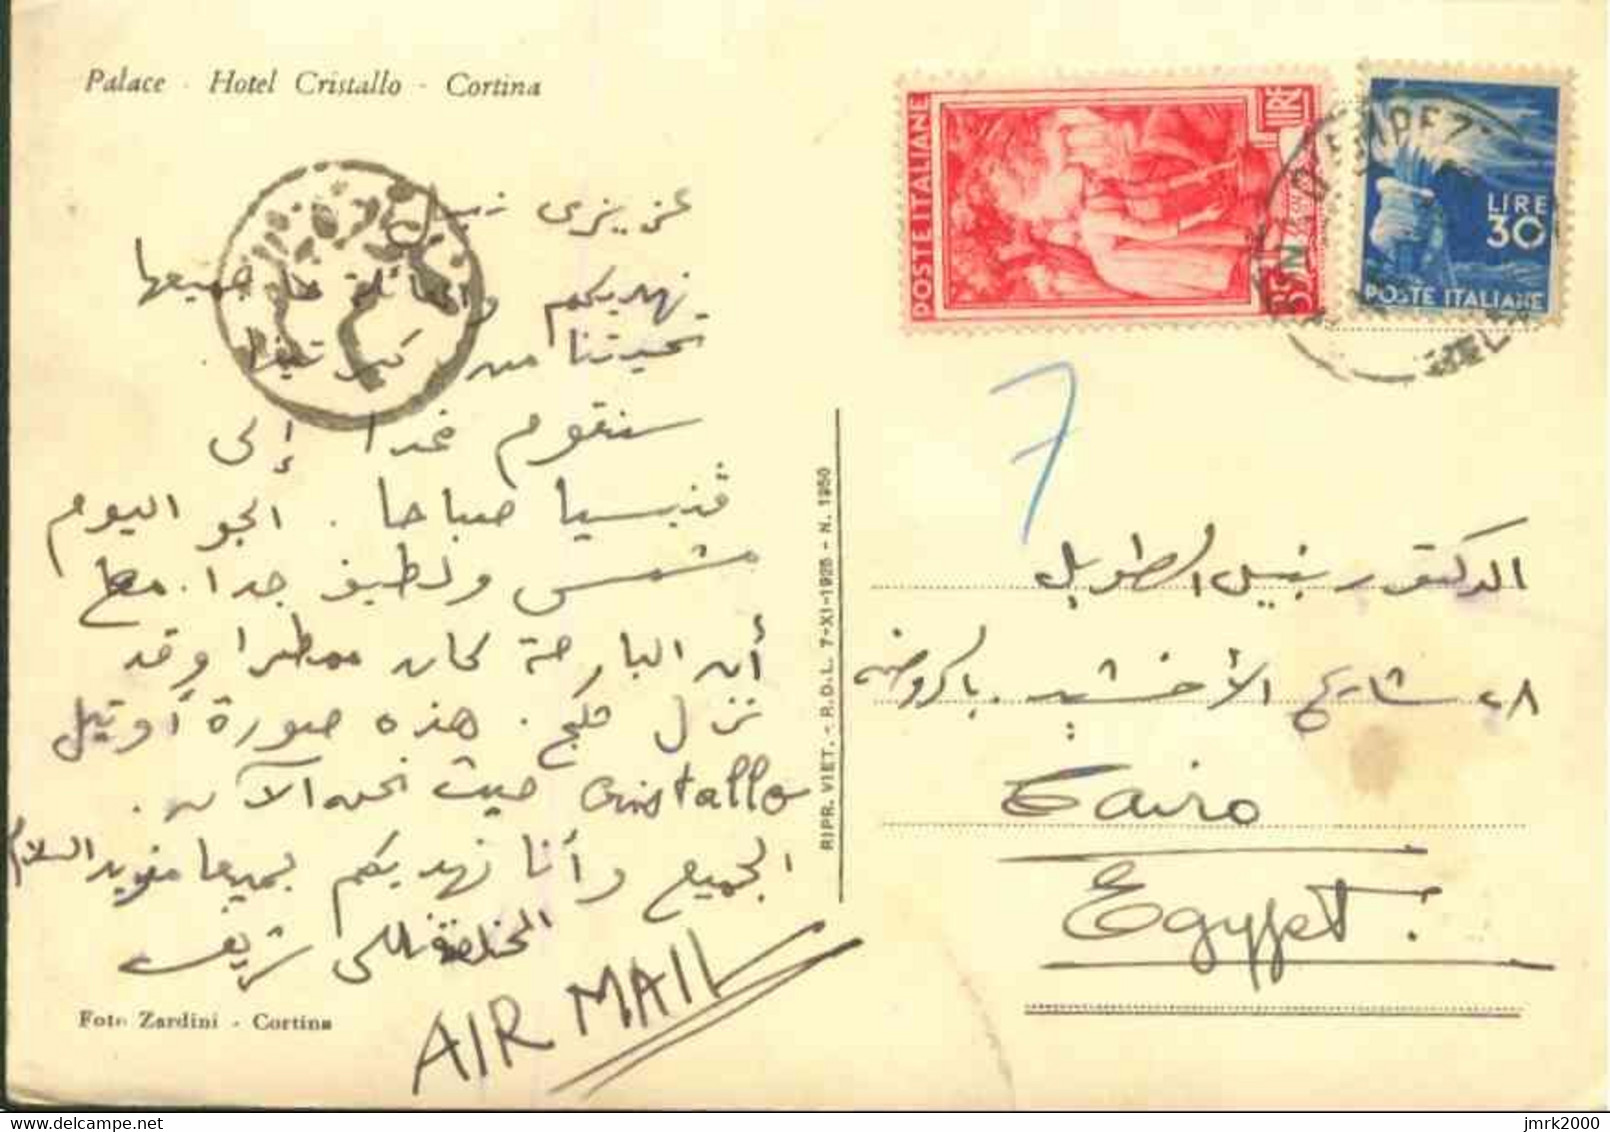 Palace - Hotel Cristallo - Cortina
عزيزى نبيل
نهديكم والعائلة جميعها
تحيتنا من كورتينا .
سنقوم غدا إلى
ڤنيسيا صباحا . الجو اليوم
مشمس ولطيف جدا . مع
أن البارحة كان ممطرا وقد
نزل ثلج . هذه صورة أوتيل
Cristallo حيث نحن الآن .
الجميع وأنا نهديكم جميعا مزيد السلام
المخلص شريف
AIR MAIL
Foto Zardini - Cortina
RIPR. VIET. - R.D.L. 7-XI-1925 - N. 1950
POSTE ITALIANE
LIRE
LIRE
30
POSTE ITALIANE
D'AMPEZZO
7
الدكتور نبيل الطويل
٢٨ شارع الأخشيد . بالروضه
Cairo
Egypt .
jmrk2000